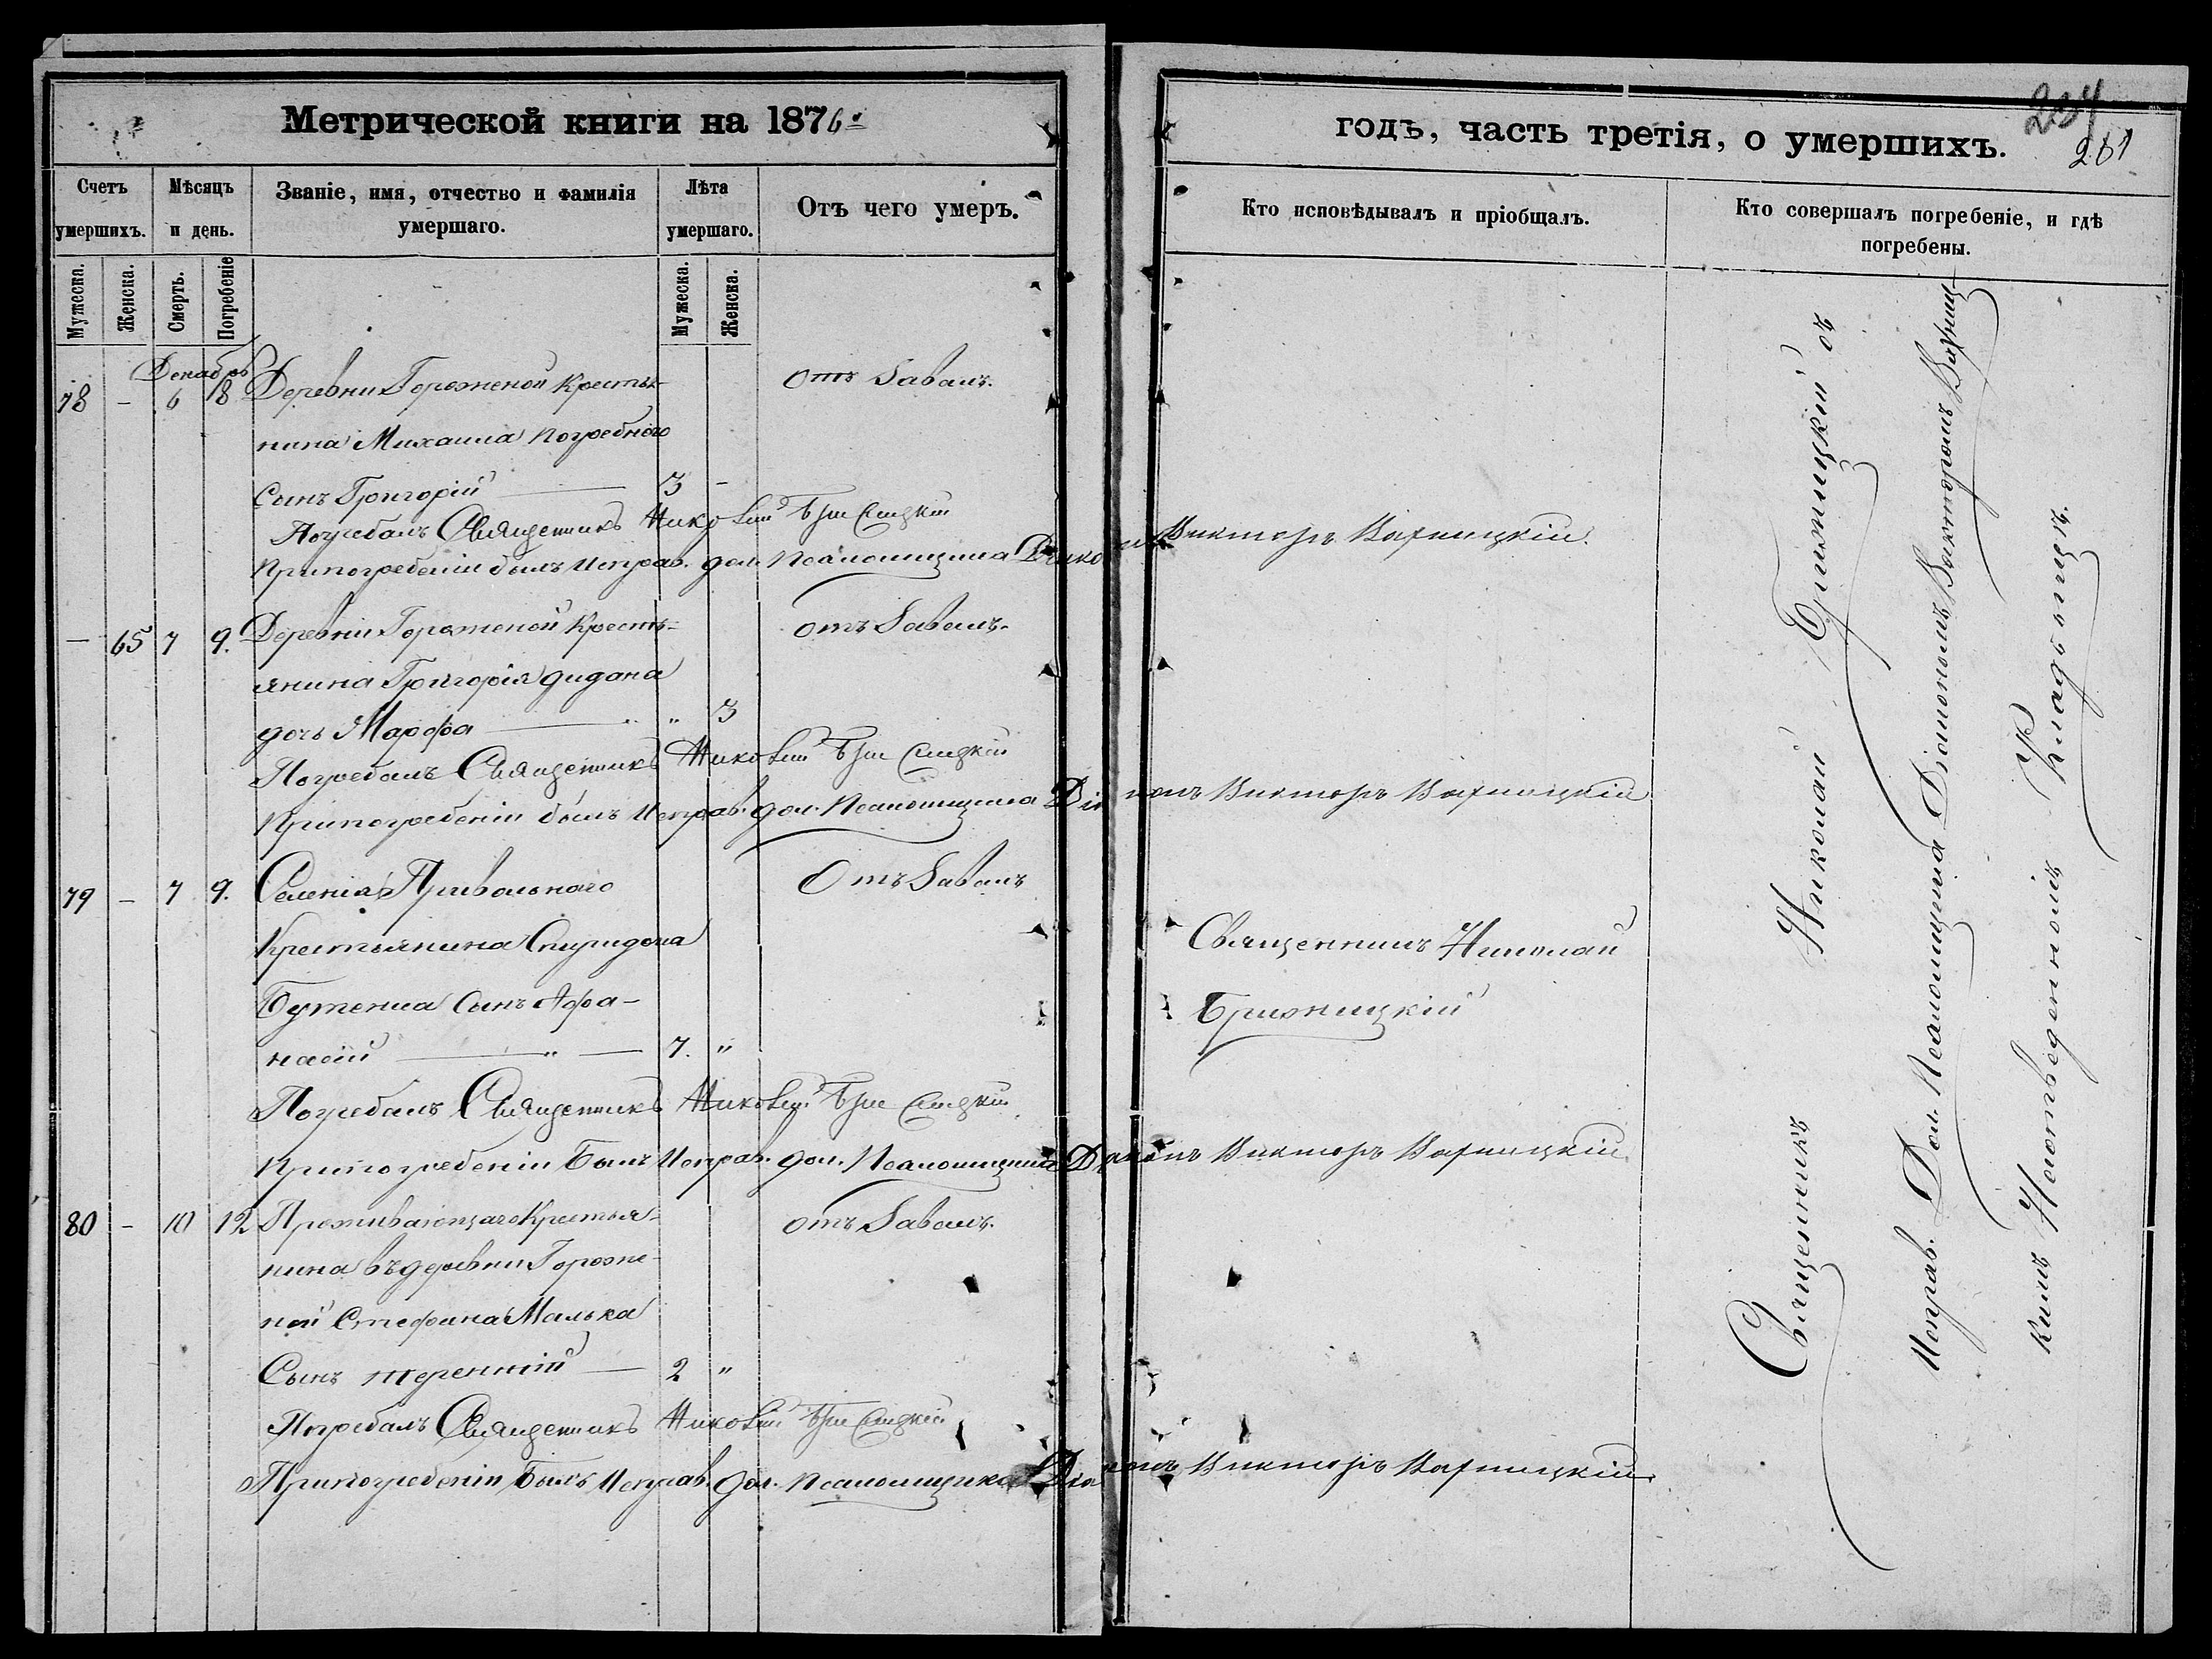 Метрической книги на 1876й
годъ, часть третія, о умершихъ.
234
261
Счетъ умершихъ.
Мѣсяцъ и день.
Званіе, имя, отчество и фамилія умершаго.
Лѣта умершаго.
Отъ чего умеръ.
Кто исповѣдывалъ и пріобщалъ.
Кто совершалъ погребеніе, и гдѣ погребены.
Мужеска.
Женска.
Смерть.
Погребеніе
Мужеска.
Женска.
Декабрь
78 – 6 8 Деревни Горожены Крестья- отъ
нина Михаила Погребного
Сынъ Григорій 3 –
Погребалъ Священникъ Николай
При погребеніи былъ Исправ. дол. Псаломщика Діаконъ Викторъ Варницкій.
– 65 7 9. Деревни Гороженой Кресть- отъ
янина Григорія Дидана
дочь Марфа " 3
Погребалъ Священникъ Николай
При погребеніи былъ Исправ. дол. Псаломщика Діаконъ Викторъ Варницкій
79 – 7 9. Селенія Привольнаго Отъ
Крестьянина Спиридона Священникъ Николай
Бутенка Сынъ Афа-
насій 7. "
Погребалъ Священникъ Николай
При погребеніи Былъ Исправ. дол. Псаломщика Діаконъ Викторъ Варницкій
80 – 10 12 Проживающаго Крестья- отъ
нина въ деревни Гороже-
ной Стефана Малька
Сынъ Терентій 2 "
Погребалъ Священникъ Николай
При погребеніи Былъ Исправ. дол. Псаломщика Діаконъ Викторъ Варницкій.
Священникъ Николай съ
Исправ. Дол. Псаломщика Діакономъ Викторомъ Варниц-
кимъ На отведенномъ Кладбищѣ.